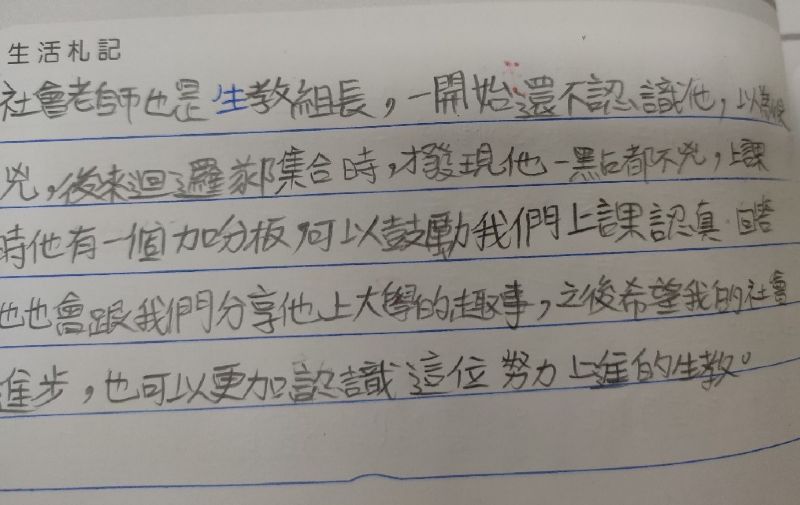 生活札記
社會老師也是生教組長，一開始還不認識他，以為很
兇，後來迴邏隊集合時，才發現他一點都不兇，上課
時他有一個加分板，可以鼓勵我們上課認真
也會跟我們分享他上大學的趣事，之後希望我的社會
進步，也可以更加認識這位努力上進的生教。